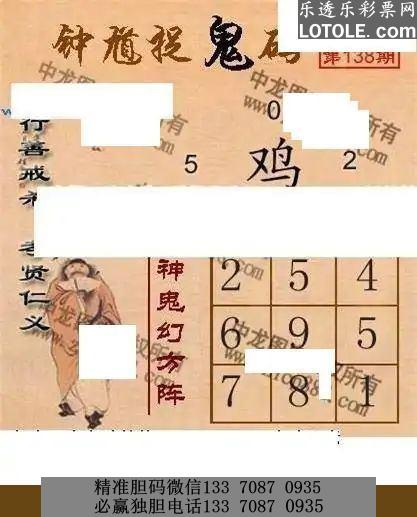 乐透乐彩票网
LOTOLE.COM
钟馗捉鬼码
第138期
0
5 鸡 2
行善戒
孝贤仁义
神鬼幻方阵
2 5 4
6 9 5
7 8 1
精准胆码微信133 7087 0935
必赢独胆电话133 7087 0935